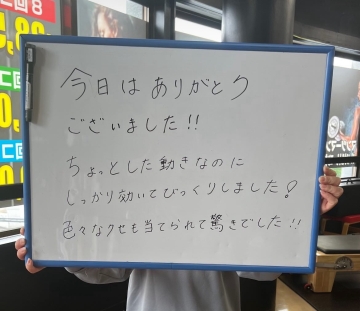 今日はありがとう
ございました!!
ちょっとした動きなのに
しっかり効いてびっくりしました!
色々なクセも当てられて驚きでした!!